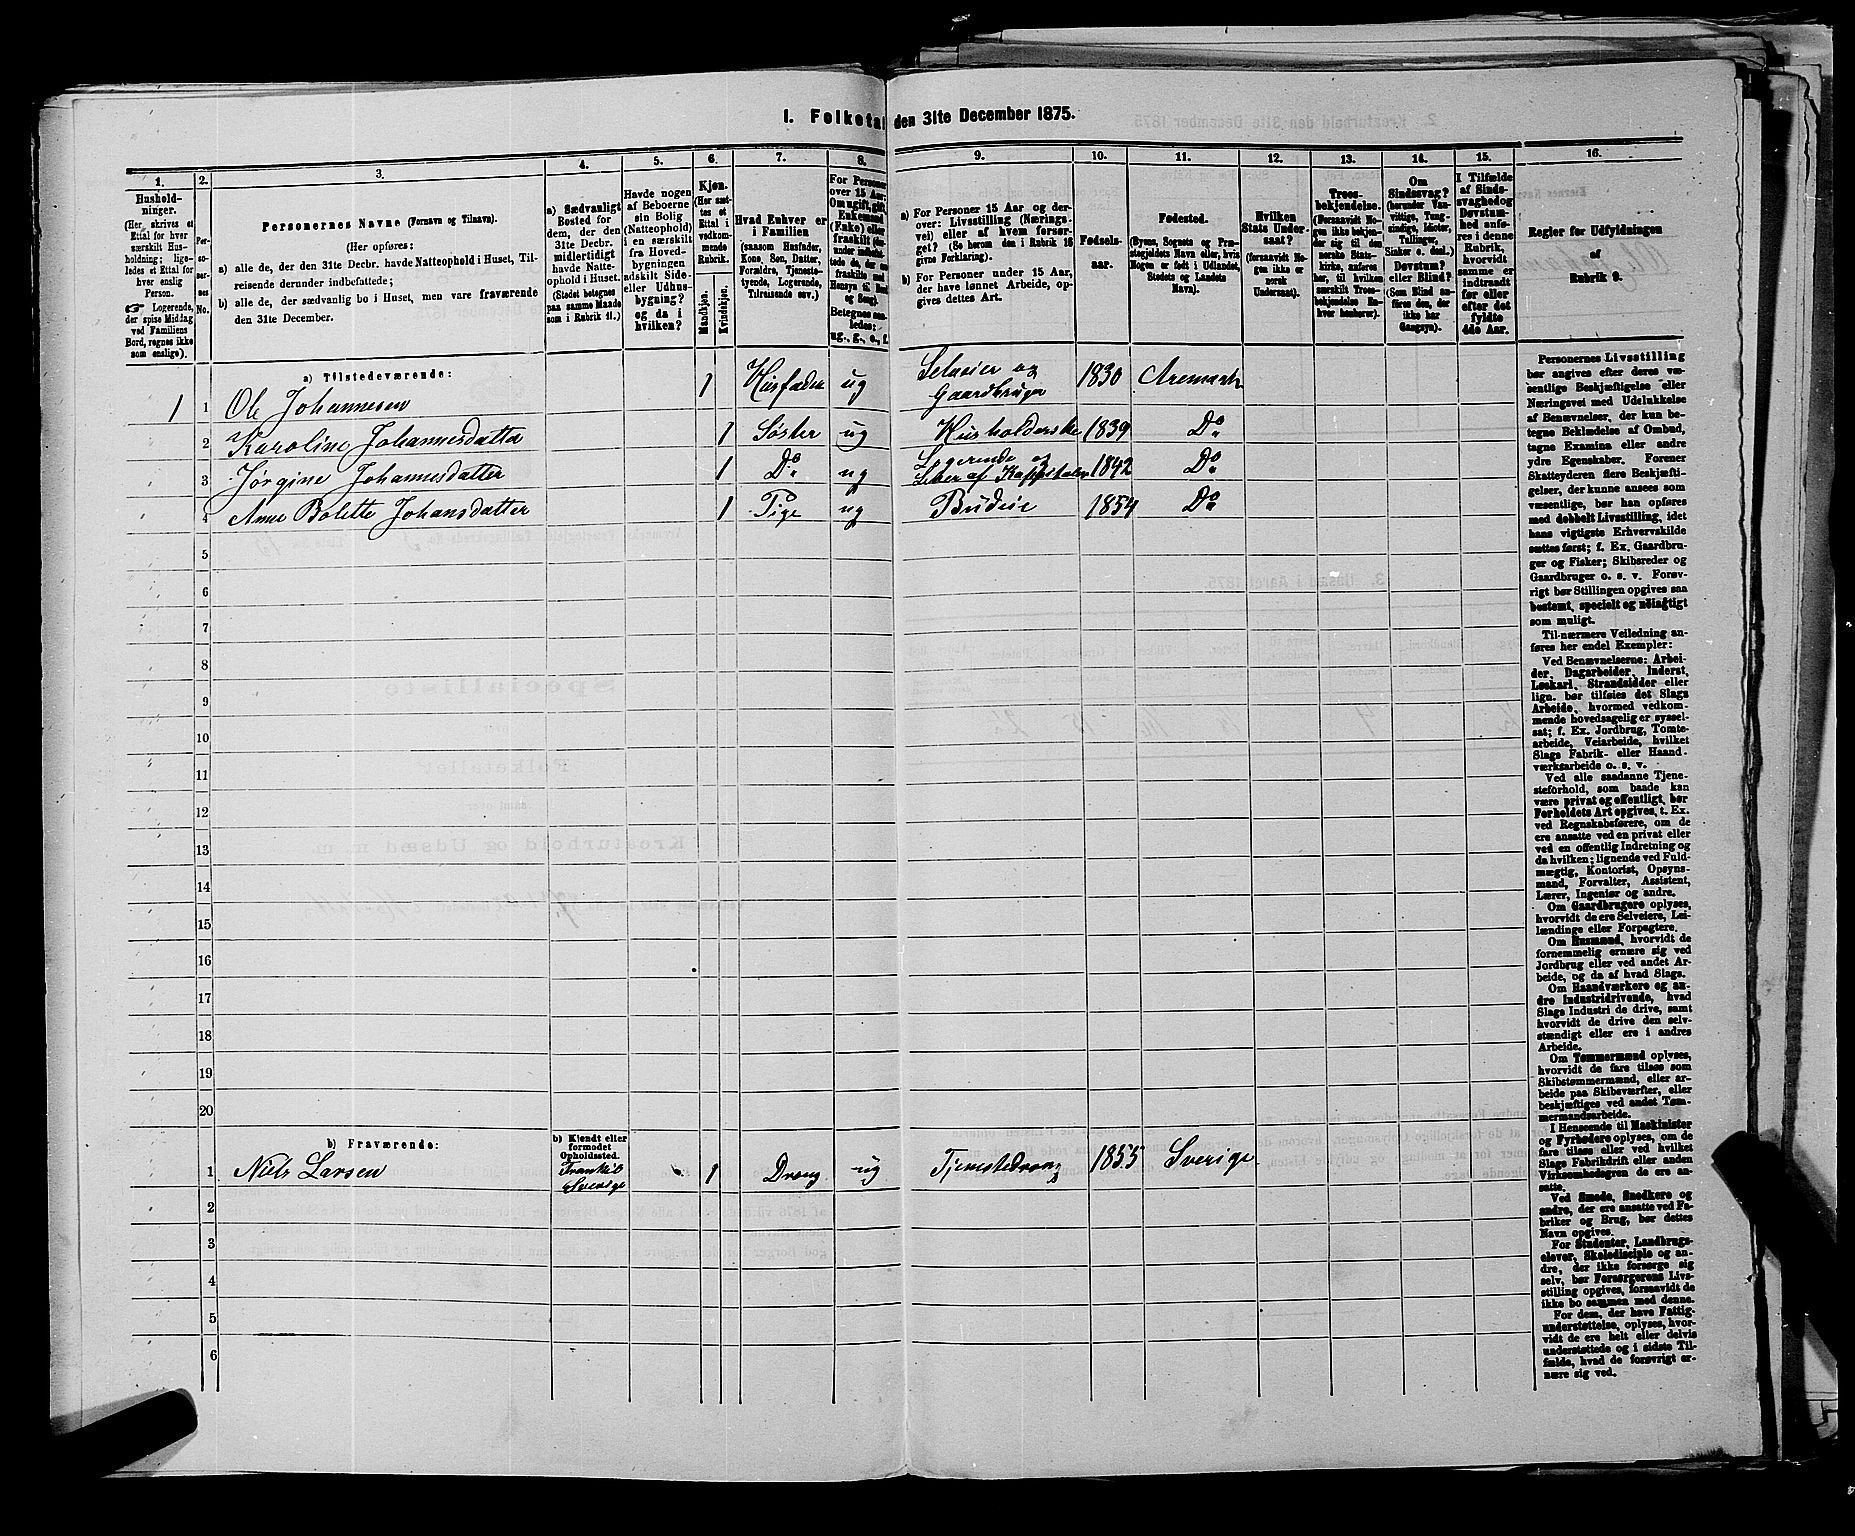 I. Folketal den 31te December 1875.
1.
2.
3.
4.
5.
6.
7.
8.
9.
10.
11.
12.
13.
14.
15.
16.
Hushold-
ninger.
(Her skrives et
Ettal for hver
særskilt Hus-
holdning; lige-
ledes et Ettal for
hver enslig
Person.
☞ Logerende,
der spise Middag
ved Familiens
Bord, regnes ikke
som enslige).
Per-
so-
ner-
nes
No.
Personernes Navne (Fornavn og Tilnavn).
(Her opføres:
a) alle de, der den 31te Decbr. havde Natteophold i Huset, Til-
reisende derunder indbefattede;
b) alle de, der sædvanlig bo i Huset, men vare fraværende
den 31te December.
a) Sædvanligt
Bosted for
dem, der den
31te Decbr.
midlertidigt
havde Natte-
ophold i Huset.
(Stedet betegnes
paa samme Maade
som i Rubrik 11.)
Havde nogen
af Beboerne
sin Bolig
(Natteophold)
i en særskilt
fra Hoved-
bygningen
adskilt Side-
eller Udhus-
bygning?
og da i
hvilken?
Kjøn.
(Her sæt-
tes et
Ettal i
vedkom-
mende
Rubrik.
Mandkjøn.
Kvindekjøn.
Hvad Enhver er
i Familien
(saasom Husfader,
Kone, Søn, Datter,
Forældre, Tjeneste-
tyende, Logerende,
Tilreisende osv.)
For Personer
over 15 Aar:
Om ugift, gift,
Enkemand
(Enke) eller
fraskilt
Betegnes saa-
ledes:
ug., g., e., f.
a) For Personer 15 Aar og der-
over: Livsstilling (Nærings-
vei) eller af hvem forsør-
get? (Se herom den i Rubrik 16
givne Forklaring).
b) For Personer under 15 Aar,
der have lønnet Arbeide, op-
gives dettes Art.
Fødsels-
aar.
Fødested.
(Byens, Sognets og Præ-
stegjeldets Navn eller, hvis
Nogen er født i Udlandet,
Stedets og Landets
Navn).
Hvilken
Stats Under-
saat?
(forsaavidt No-
gen ikke er
norsk
Undersaat).
Troes-
bekjendelse.
(Forsaavidt No-
gen ikke bekjen-
der sig til den
norske Stats-
kirke, anføres
her, til hvilken
særskilt Troes-
bekjendelse En-
hver henhører).
Om
Sindssvag?
(herunder Van-
vittige, Tung-
sindige, Idioter,
Tullinger,
Sinker o. desl.)
Døvstum?
eller Blind?
(Som Blind an-
føres den, der
ikke har
Gangsyn).
I Tilfælde
af Sinds-
svaghed og
Døvstum-
hed anfø-
res i denne
Rubrik,
hvorvidt
samme er
indtraadt
før eller
efter det
fyldte
4de Aar.
Regler for Udfyldningen
af
Rubrik 9.
a) Tilstedeværende:
1 1 Ole Johannesen 1 Husfader ug Selveier og Gaardbruger 1830 Aremark
2 Karoline Johannesdatter 1 Søster ug Husholderske 1839 Do
3 Jørgine Johannesdatter 1 Do ug Logerende og Lever af Kapitalen 1842 Do
4 Anne Bolette Johansdatter 1 Pige ug Budeie 1854 Do
5
6
7
8
9
10
11
12
13
14
15
16
17
18
19
20
b) Fraværende:
b) Kjendt eller
formodet
Opholdssted.
1 Niels Larsen Sverige 1 Dreng ug Tjenestedreng 1855 Sverige
2
3
4
5
6
Personernes Livsstilling
bør angives efter deres væ-
sentlige Beskjæftigelse eller
Næringsvei med Udelukkelse
af Benævnelser, der kun be-
tegne Beklædelse af Ombud,
tagne Examina eller andre
ydre Egenskaber. Forener
Skatteyderen flere Beskjæfti-
gelser, der kunne ansees som
væsentlige, bør han opføres
med dobbelt Livsstilling, idet
hans vigtigste Erhvervskilde
sættes først; f. Ex. Gaardbru-
ger og Fisker; Skibsreder og
Gaardbruger o. s. v. Forøv-
rigt bør Stillingen opgives saa
bestemt, specielt og nøiagtigt
som muligt.
Til nærmere Veiledning an-
føres her endel Exempler:
Ved Benævnelserne: Arbei-
der, Dagarbeider, Inderst,
Løskarl, Strandsidder eller
lign. bør tilføies det Slags
Arbeide, hvormed vedkom-
mende hovedsagelig er syssel-
sat; f. Ex. Jordbrug, Tomte-
arbeide, Veiarbeide, hvilket
Slags Fabrik- eller Haand-
værksarbeide o. s. v.
Ved alle saadanne Tjene-
steforhold, som baade kan
være privat og offentligt, bør
Forholdets Art opgives, t. Ex.
ved Regnskabsførere, om de
ere ansatte ved en privat eller
ved en offentlig Indretning og
da hvilken; lignende ved Fuld-
mægtig, Kontorist, Opsyns-
mand, Forvalter, Assistent,
Lærer, Ingeniør og andre.
Om Gaardbrugere oplyses,
hvorvidt de ere Selveiere, Lei-
lændinge eller Forpagtere.
Om Husmænd, hvorvidt de
fornemmelig ernære sig ved
Jordbrug eller ved andet Ar-
beide, og da af hvad Slags.
Om Haandværkere og an-
dre Industridrivende, hvad
Slags Industri de drive, samt
hvorvidt de drive den selv-
stændigt eller ere i andres
Arbeide.
Om Tømmermænd oplyses,
hvorvidt de fare tilsøs som
Skibstømmermænd, eller ar-
beide paa Skibsværfter, eller
beskjæftiges ved andet Tøm-
mermandsarbeide.
I Henseende til Maskinister
og Fyrbødere oplyses, om de
fare tilsøs eller ved hvilket
Slags Fabrikdrift eller anden
Virksomhedsgren de ere an-
satte.
Ved Smede, Snedkere og
andre, der ere ansatte ved Fa-
briker og Brug, bør dettes
Navn opgives.
For Studenter, Landbrugs-
elever, Skoledisciple og an-
dre, der ikke forsørge sig
selv, bør Forsørgerens Livs-
stilling opgives, forsaavidt de
ikke bo sammen med denne.
For dem, der have Fattig-
understøttelse, oplyses, hvor-
vidt de ere helt eller delvis
understøttede og i sidste Til-
fælde, hvad de forøvrigt er-
nære sig ved.